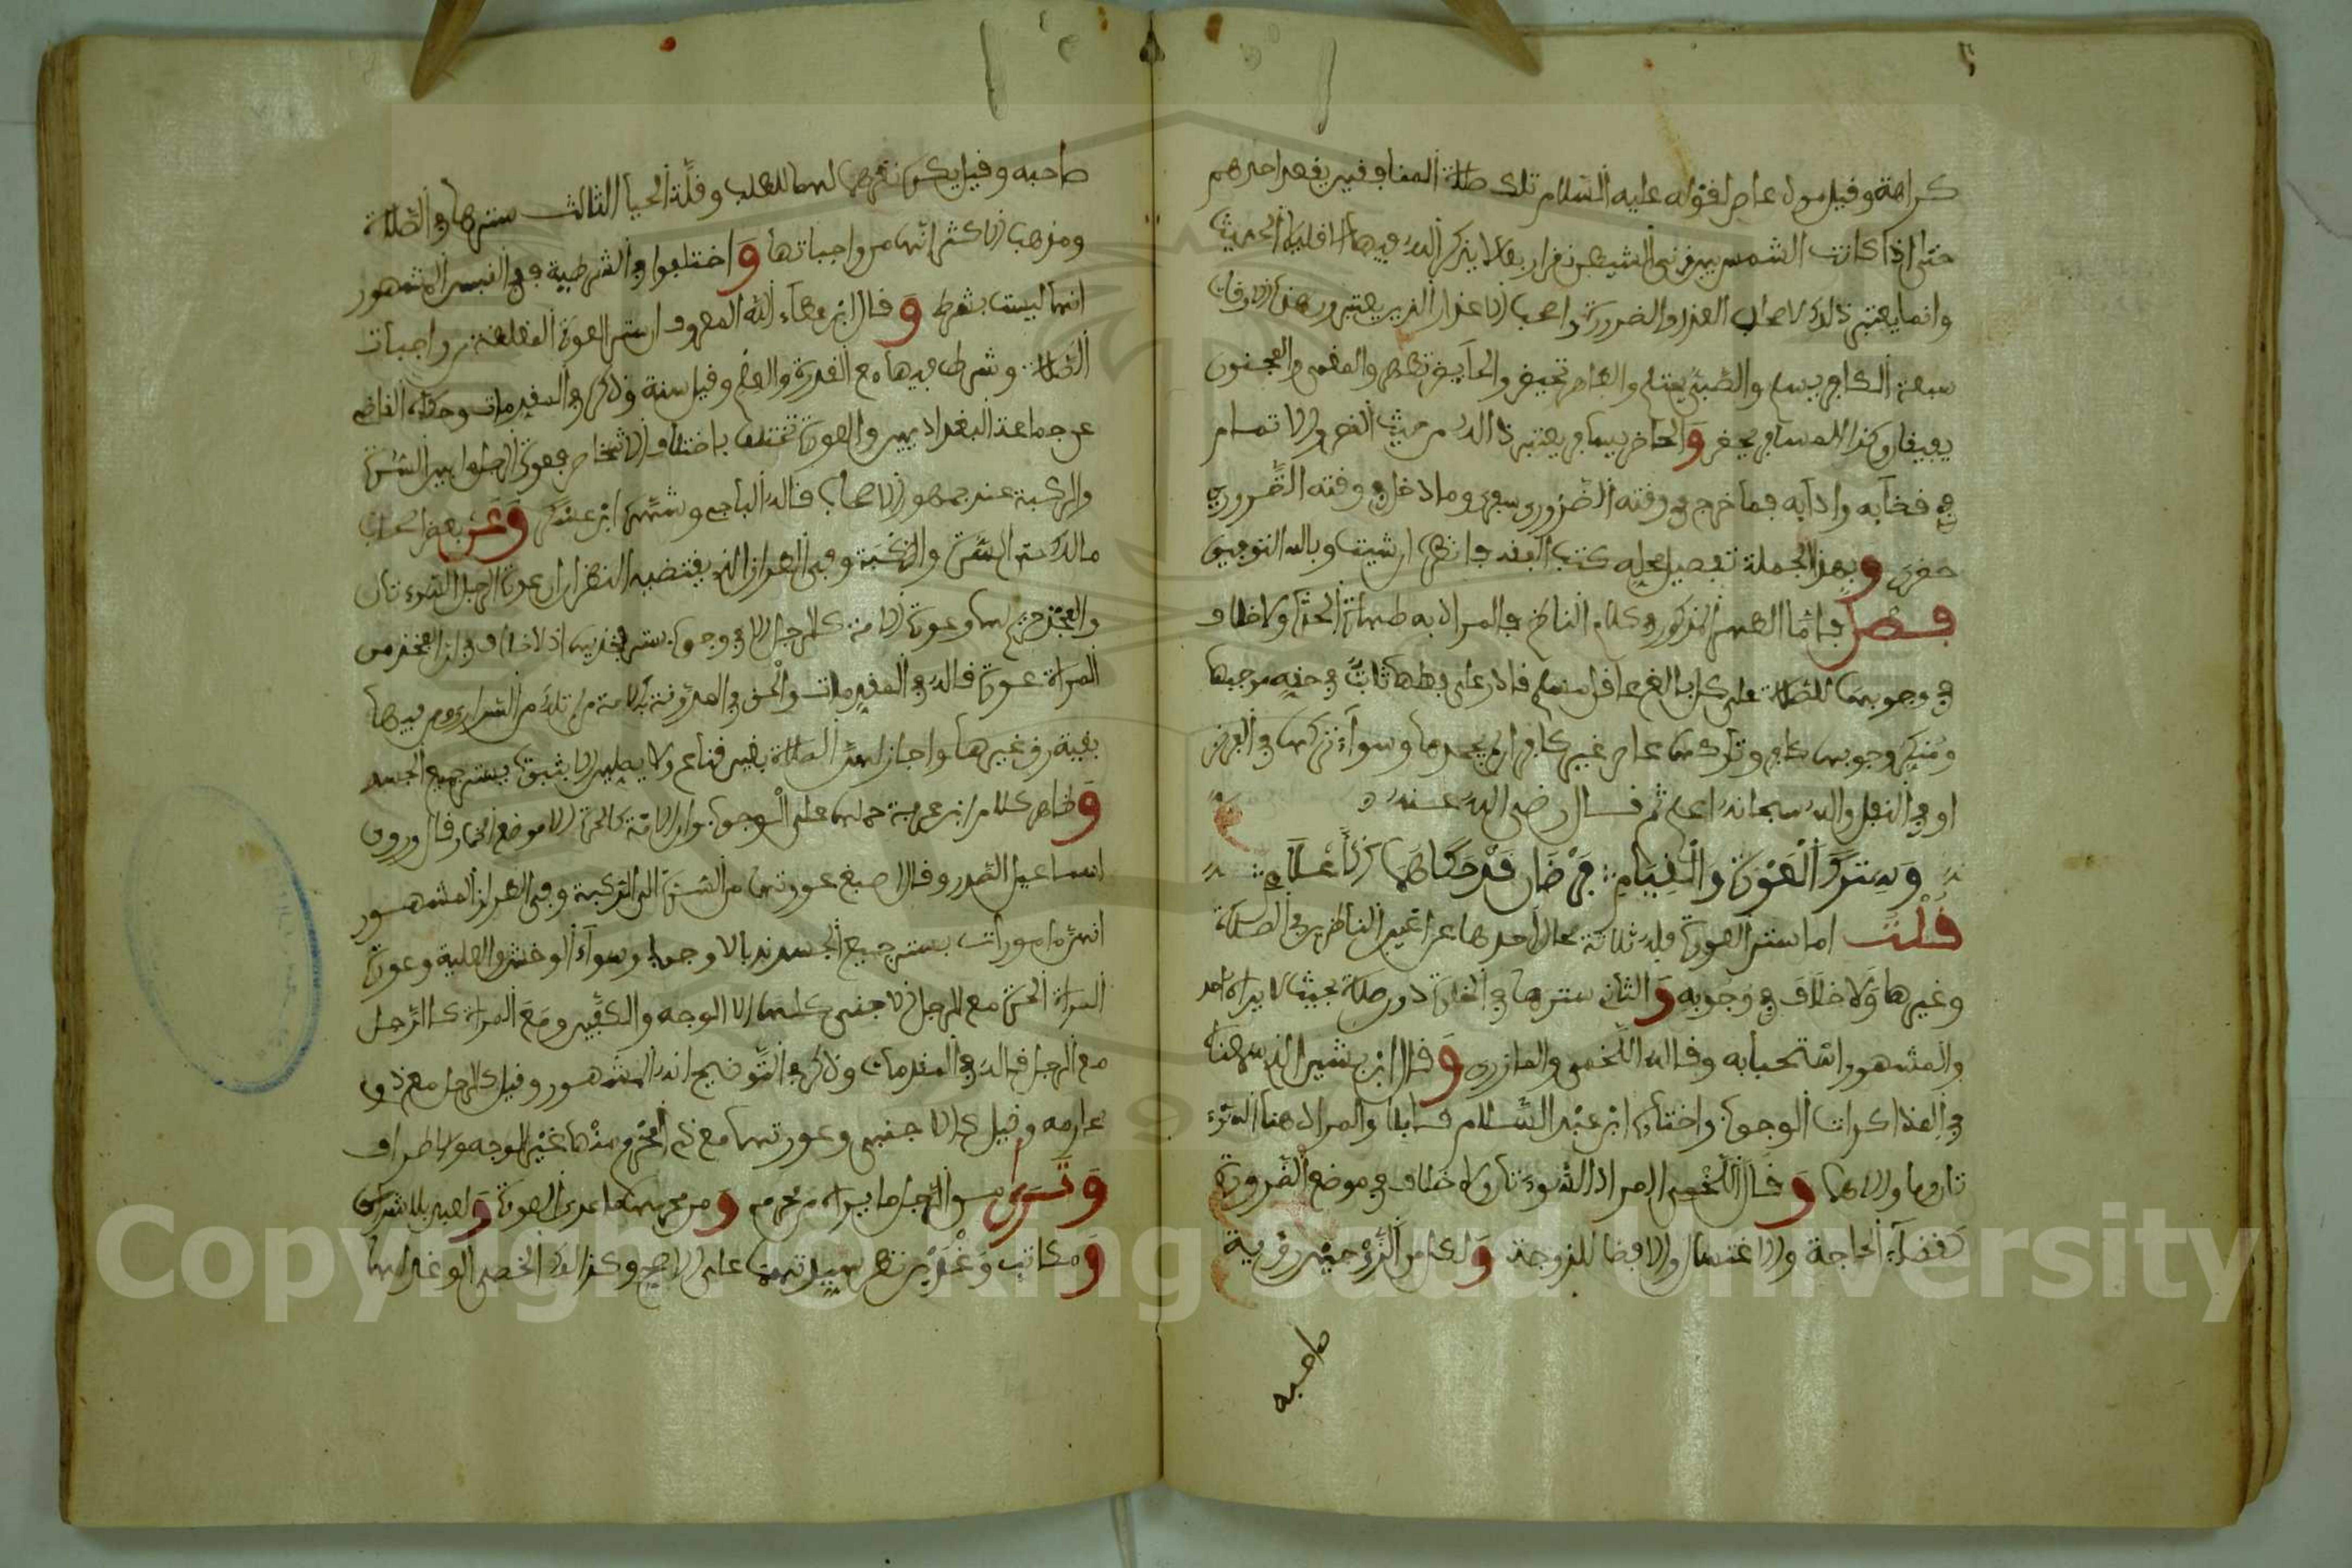 كراهة وقيل مول عاص لقوله عليه السلام تلك صلاة المنافقين يقعد احدهم
حتى اذا كانت الشمس بين قرني الشيطان نقر اربعا لا يذكر الله فيها الا قليلا الحديث
وانما يعتبر ذالك لاصحاب العذر والضرورة واصحاب الاعذار الذين يعتبرون هذه الاوقات
سبعة الكافر يسلم والصبي يحتلم والطاهر تحيض والحايض تطهر والمغمى والمجنون
يفيقان وكذا المسافر يحضر والحاضر يسافر يعتبر ذالك من حيث القصر والاتمام
في قضايه وادايه فما خرج في وقته الضروري سفري وما دخل في وقته الضروري
حضري وبهذه الجملة تفصيل محله كتب الفقه فانظره ان شيت وبالله التوفيق
فصل فاما الطهر المذكور في كلام الناظم فالمراد به طهارة الحدث ولا خلاف
في وجوبها للصلاة على كل بالغ عاقل مسلم قادر على فعلها ثابت في حقه موجبها
ومنكر وجوبها كافر وتاركها عاص غير كافر ان لم يجحدها وسواء تركها في الفرض
او في النفل والله سبحانه اعلم ثم قال رضي الله عنه
وستر العورة والقيام فرضان قد حكاهما الاعلام
قلت اما ستر العورة فله ثلاثة محال احدها عن اعين الناظرين في الصلاة
وغيرها ولا خلاف في وجوبه والثاني سترها في الخلوة دون صلاة بحيث لا يراه احد
والمشهور استحبابه وقاله اللخمي والمازري وقال ابن بشير الذي سمعناه
في المذاكرات الوجوب واختاره ابن عبد السلام قايلا والمراد هنا السوءتان
وما والاهما وقال اللخمي المراد السوءتان ولا خلاف في موضع الضرورة
كقضاء الحاجة والاغتسال والافضا للزوجة ولكل من الزوجين رؤية
صاحبه
صاحبه وقيل يكره نظرهما لهما للطب وقلة الحيا الثالث سترها في الصلاة
ومذهب الاكثر انها من واجباتها واختلفوا في الشرطية ففي القبس المشهور
انها ليست بشرط وقال ابن عطاء الله المعروف ان ستر العورة المغلظة من واجبات
الصلاة وشرط فيها مع القدرة والعلم وقيل سنة وذكره في المقدمات وحكاه القاضي
عن جماعة البغداديين والعورة تختلف باختلاف الاشخاص فعورة الرجل ما بين السرة
والركبة عند جمهور الاصحاب قاله الباجي وشهره ابن عسكر وعن بعض اصحاب
مالك ستر السرة والركبة وفي الطراز الذي يقتضيه النظر ان عورة الرجل السوءتان
والفخذ حريم لها وعورة الامة كالرجل الا في وجوب ستر فخذيها اذ لا خلاف في ان الفخذ من
المراة عورة قاله في المقدمات والحق في المدونة بالامة من تلد من السراري ومن فيها
بقية رق غيرها واجاز لهن الصلاة بغير قناع ولا يصلين الا بثوب يستر جميع الجسد
وظاهر كلام ابن عرفة حملها على الوجوب وام الامة كالحرة الا موضع الخمار قال وروى
اسماعيل الصدر وقال اصبغ عورتها من السرة الى الركبة وفي الطراز المشهور
انهن مامورات بستر جميع الجسد ندبا لا وجوبا وسواء الوخش والعلية وعورة
المراة الحرة مع الرجل الاجنبي كلها الا الوجه والكفين ومع المراة كالرجل
مع الرجل قاله في المقدمات وذكر في التوضيح انه المشهور وقيل كالرجل مع ذوي
محارمه وقيل كالاجنبي وعورتها مع ذي المحرم منها غير الوجه والاطراف
وترى من الرجل ما يراه من محرم ومن محرمها ما عدى العورة ولعبد بلا شرك
ومكاتب وغدين نظر سيدتهما على الاصح وكذالك الخصي الوغد لها
Copyright © King Saud University